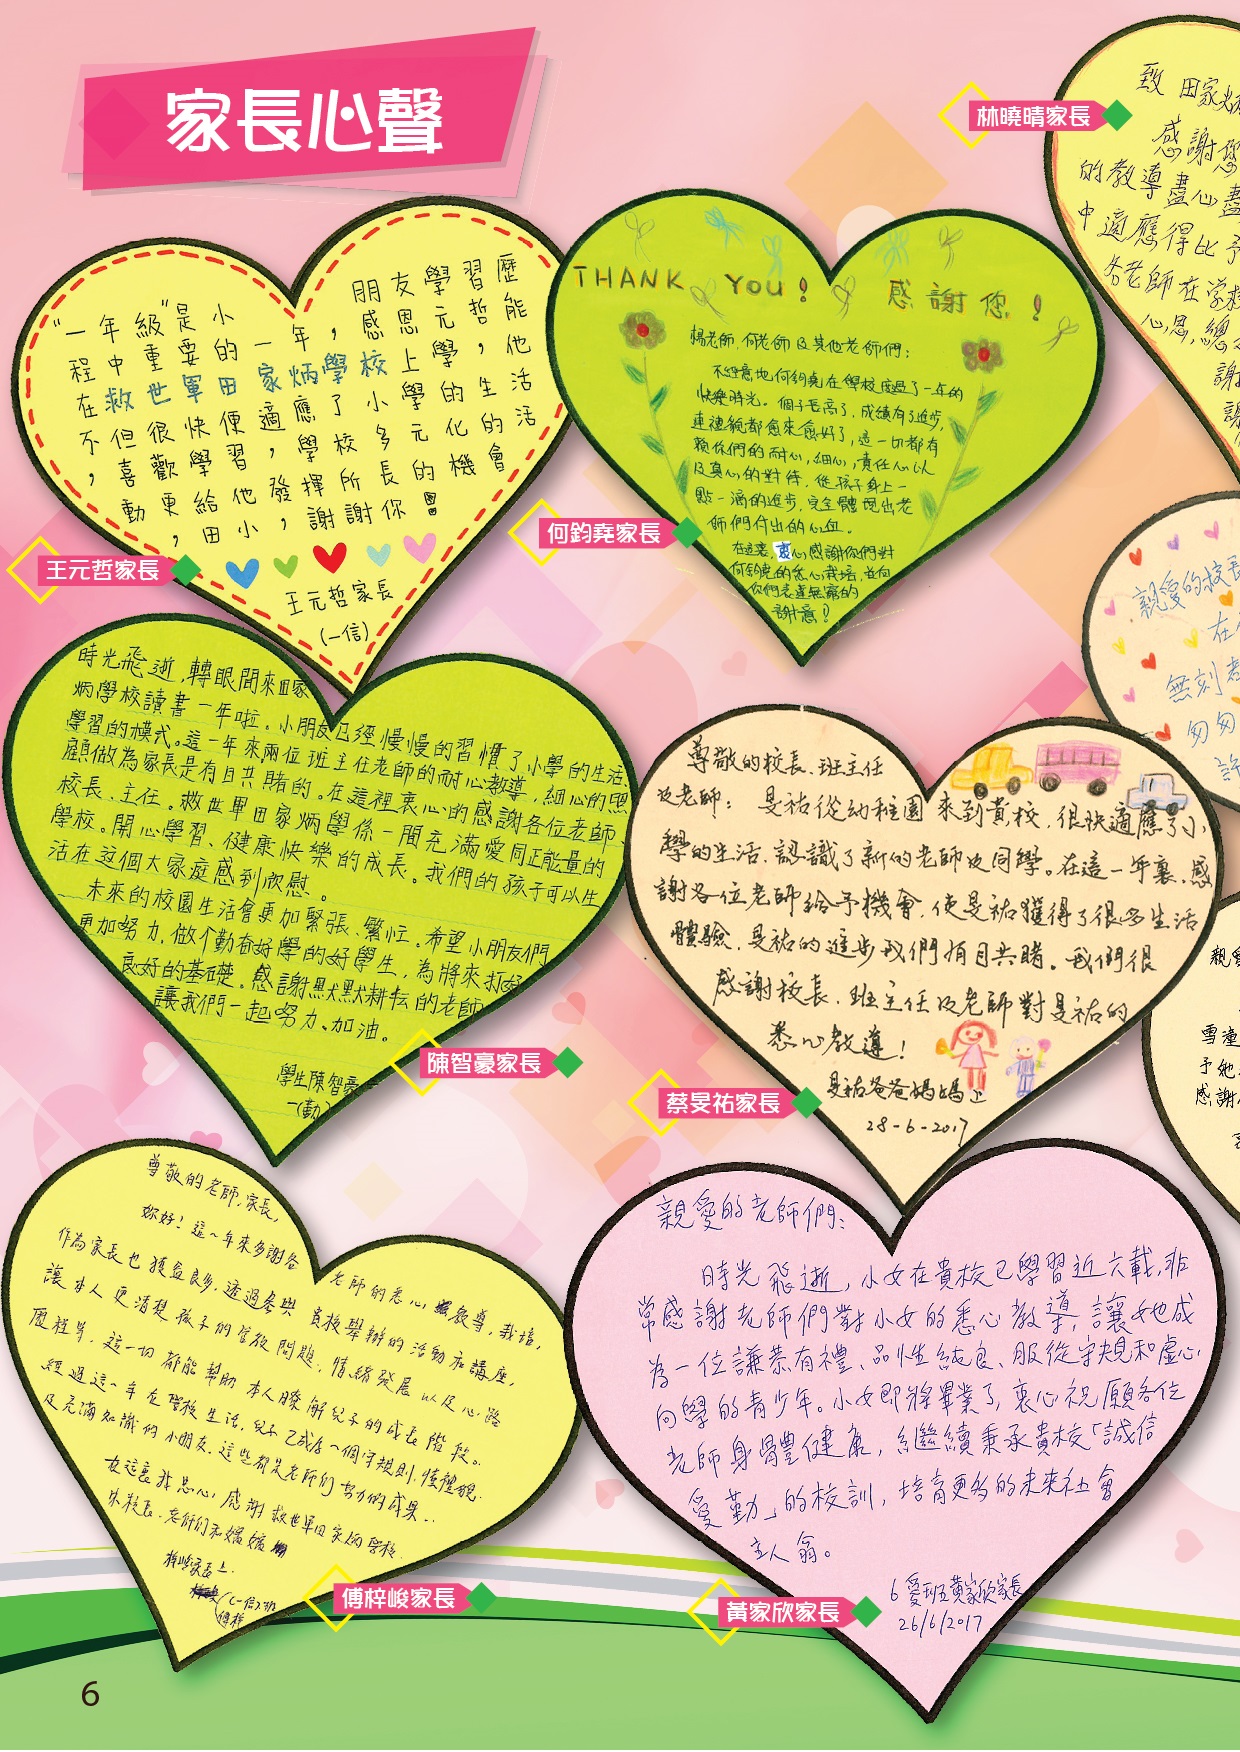 家長心聲
林曉晴家長
致 田家炳
感謝您
的教導盡心盡
中適應得比予
各老師在學校
心思,總
謝
謝
朋友學習歷
"一年級"是小一年,感恩元哲能
程中重要的
在救世軍田家炳學校上學,他
不但很快便適應了小學的生活
,喜歡學習,學校多元化的活
動更給他發揮所長的機會
,田小,謝謝你!
王元哲家長
(一信)
王元哲家長
THANK You! 感謝您!
楊老師,何老師及其他老師們:
不經意地何鈞堯在學校度過了一年的
快樂時光。個子長高了,成績有了進步,
連禮貌都愈來愈好了,這一切都有
賴你們的耐心,細心,責任心以
及真心的對待,從孩子身上一
點一滴的進步,完全體現出老
師們付出的心血。
在這裏,衷心感謝你們對
何鈞堯的悉心栽培,並向
你們表達無窮的
謝意!
何鈞堯家長
親愛的校長
在
無刻
匆匆
許
時光飛逝,轉眼間來田家
炳學校讀書一年啦。小朋友已經慢慢的習慣了小學的生活、
學習的模式。這一年來兩位班主任老師的耐心教導,細心的照
顧做為家長是有目共睹的。在這裡衷心的感謝各位老師、
校長、主任。救世軍田家炳學係一間充滿愛同正能量的
學校。開心學習、健康快樂的成長。我們的孩子可以生
活在這個大家庭感到欣慰。
未來的校園生活會更加緊張、繁忙。希望小朋友們
更加努力,做个勤奋好學的好學生,為將來打好
良好的基礎。感謝默默耕耘的老師
讓我們一起努力、加油。
學生陳智豪
一(勤)
陳智豪家長
尊敬的校長、班主任
及老師: 旻祐從幼稚園來到貴校,很快適應了小
學的生活,認識了新的老師及同學。在這一年裏,感
謝各位老師給予機會,使旻祐獲得了很多生活
體驗,旻祐的進步我們有目共睹。我們很
感謝校長、班主任及老師對旻祐的
悉心教導!
旻祐爸爸媽媽上
28-6-2017
蔡旻祐家長
親愛
雪潼
予她
感謝
尊敬的老師,家長,
妳好!這一年來多謝各老師的悉心教導,栽培,
作為家長也獲益良多,透過參與貴校舉辦的活動和講座,
讓本人更清楚孩子的管教問題,情緒發展以及心路
歷程等,這一切都能幫助本人瞭解兒子的成長階段。
經過這一年在學校生活,兒子已成為一個守規則,懂禮貌
及充滿知識的小朋友,這些都是老師們努力的成果..
在這裏我忠心感謝救世軍田家炳學校
老師们和嬸嬸
梓峻家長上
(一信)班
傅梓
傅梓峻家長
親愛的老師們:
時光飛逝,小女在貴校已學習近六載,非
常感謝老師們對小女的悉心教導,讓她成
為一位謙恭有禮、品性純良、服從守規和虛心
向學的青少年。小女即將畢業了,衷心祝願各位
老師身體健康,繼續秉承貴校「誠信
愛勤」的校訓,培育更多的未來社會
主人翁。
6愛班黃家欣家長
26/6/2017
黃家欣家長
6